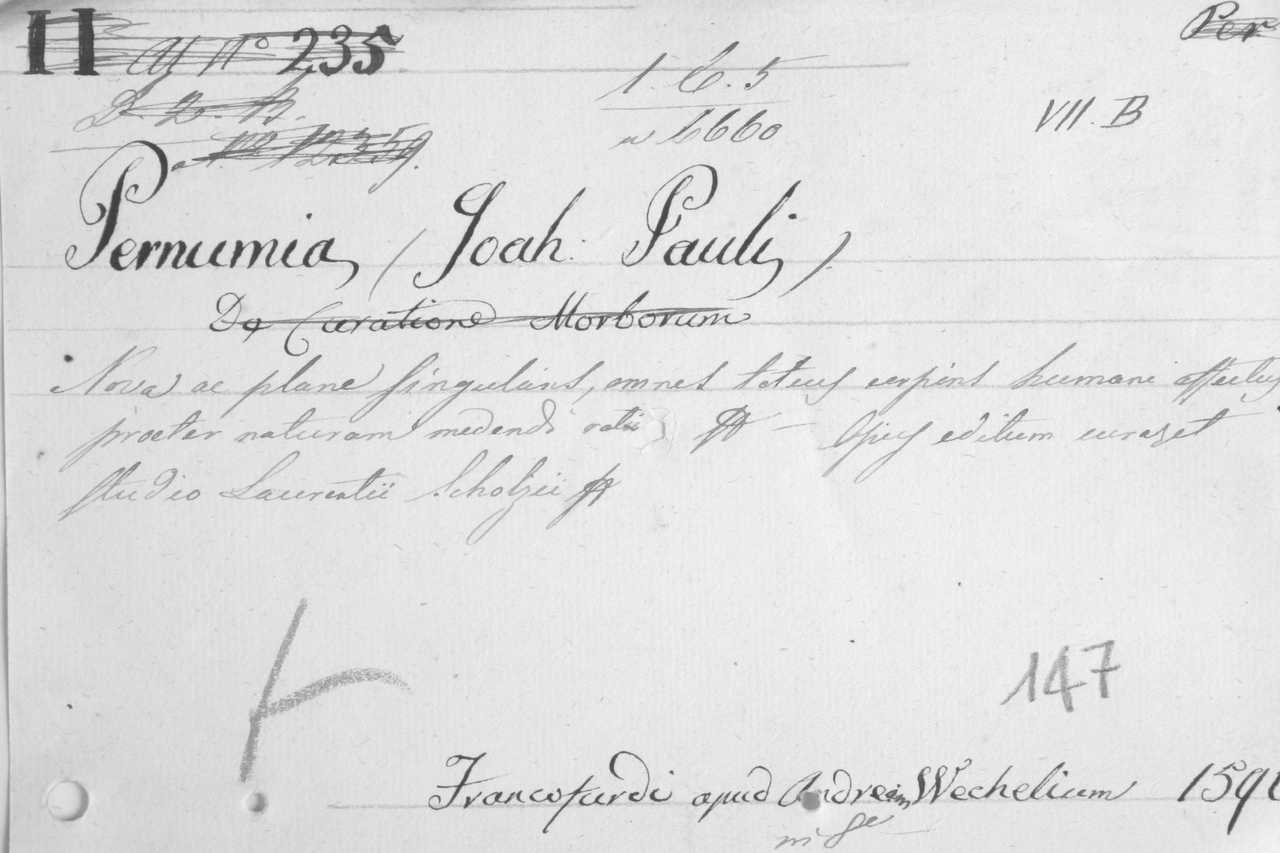 II 235 Per
1. C. 5
VII. B
6660
Pernumia, (Joah. Pauli).
De Curatione Morborum
Nova ac plane singularis, omnes totius corporis humani affectus
praeter naturam medendi ratio — Opus editum cura et
studio Laurentii Scholzii
147
Francofurdi apud Andream Wechelium 159
in 8e